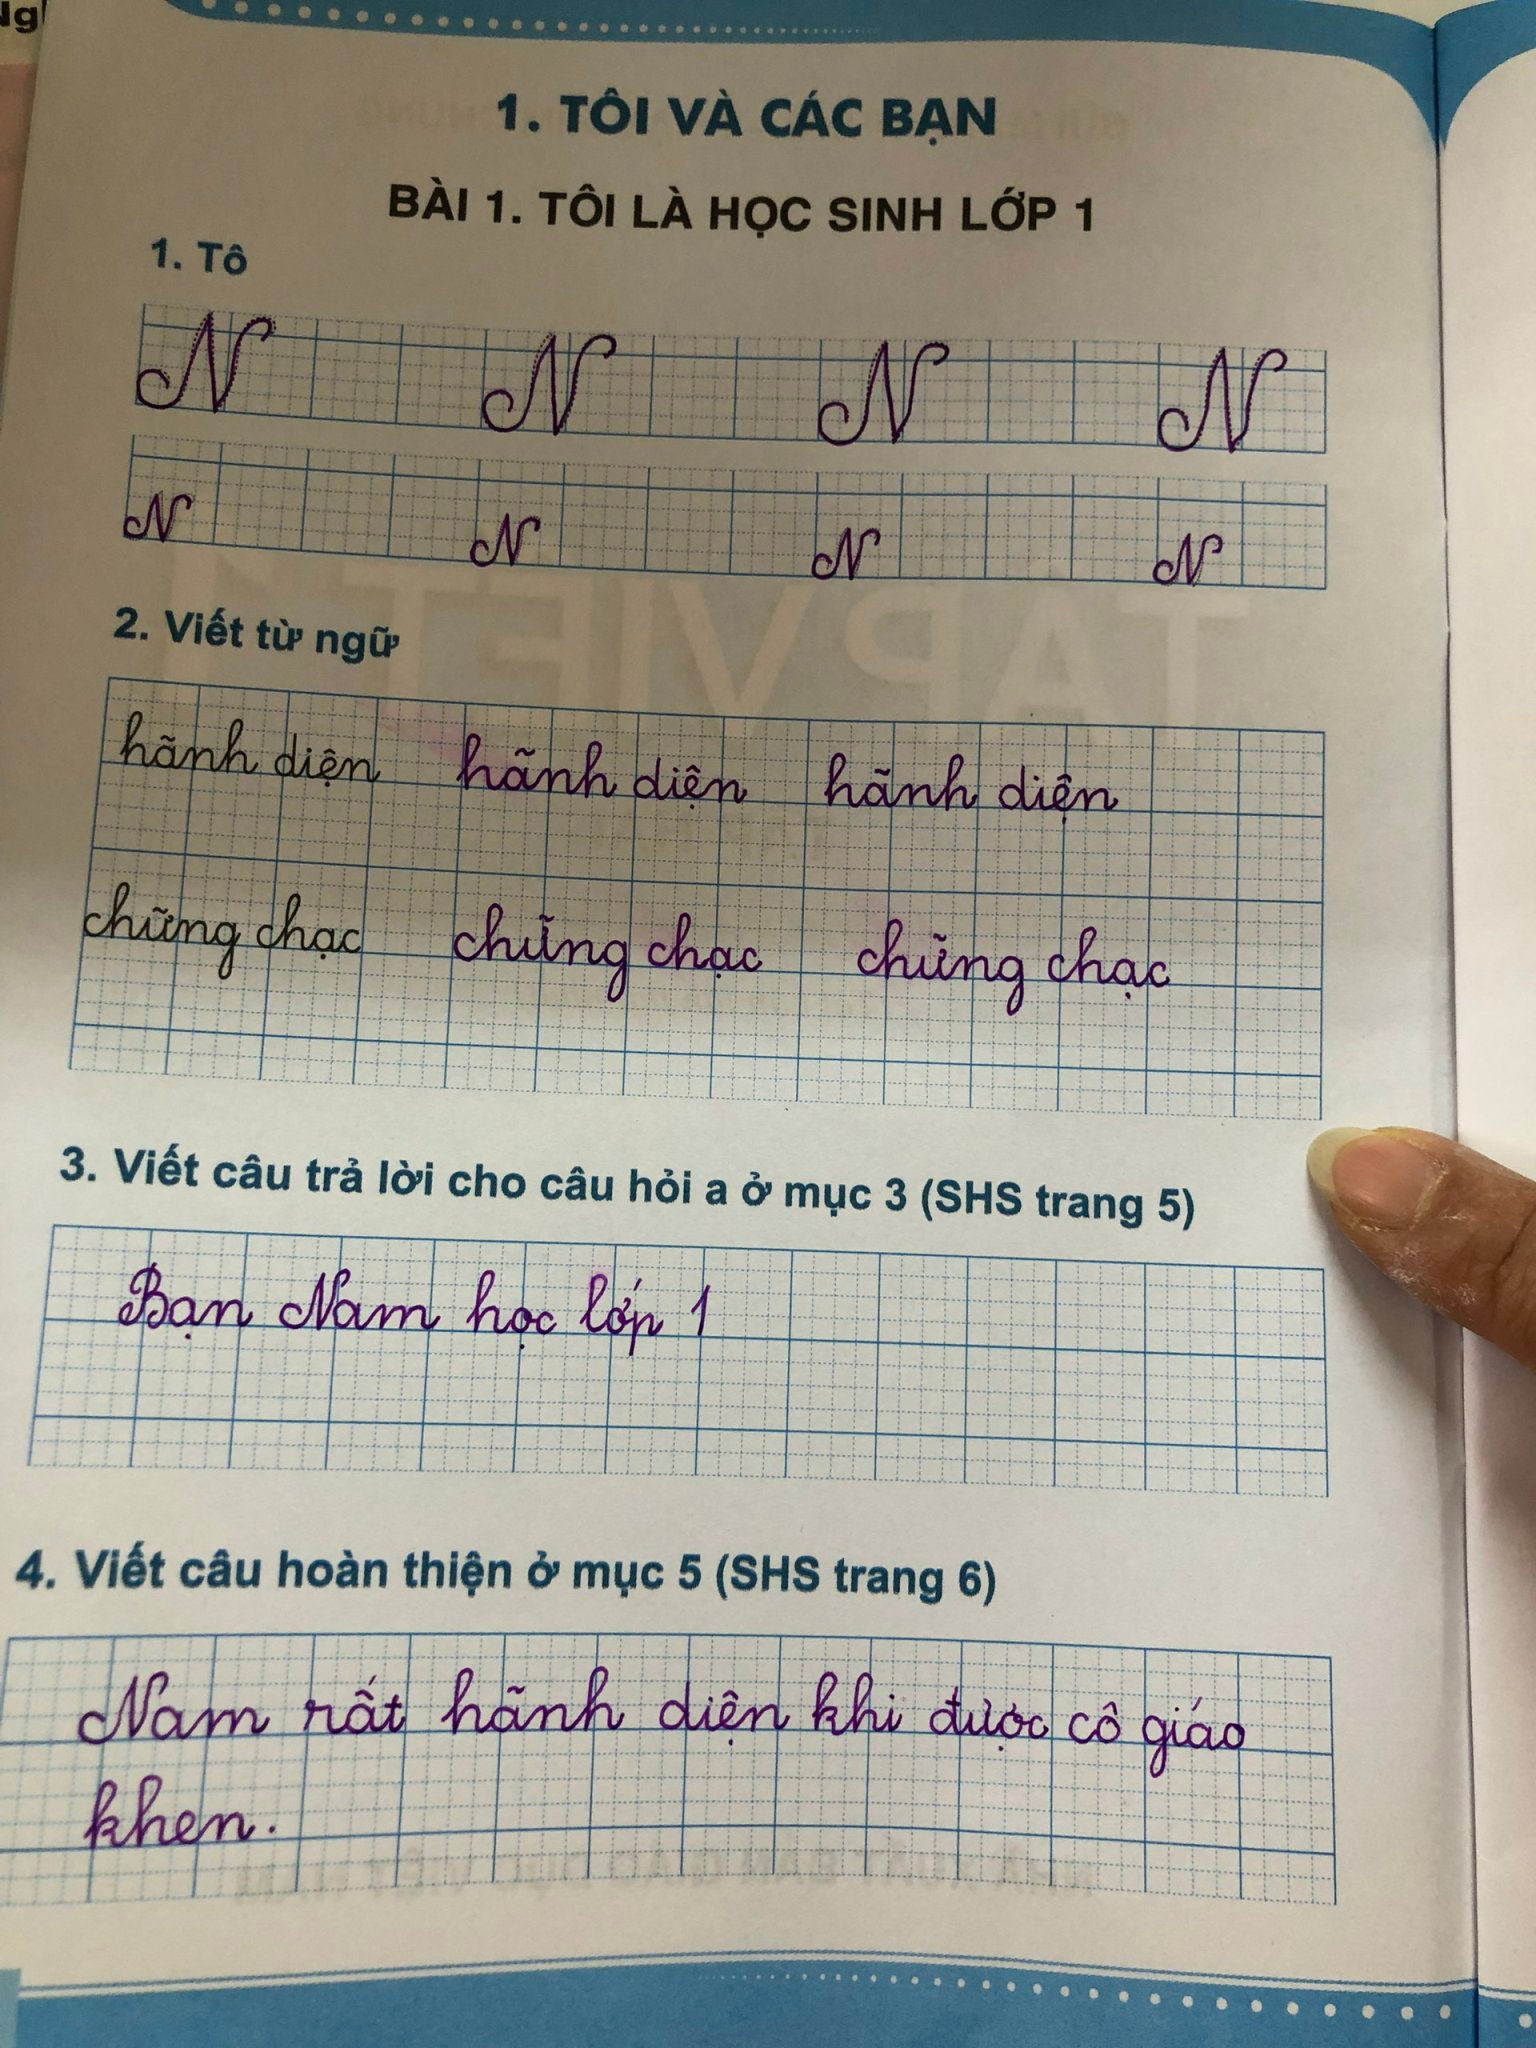 Ng
1. TÔI VÀ CÁC BẠN
BÀI 1. TÔI LÀ HỌC SINH LỚP 1
1. Tô
N N N N
N N N N
2. Viết từ ngữ
hãnh diện hãnh diện hãnh diện
chững chạc chững chạc chững chạc
3. Viết câu trả lời cho câu hỏi a ở mục 3 (SHS trang 5)
Bạn Nam học lớp 1
4. Viết câu hoàn thiện ở mục 5 (SHS trang 6)
Nam rất hãnh diện khi được cô giáo
khen.